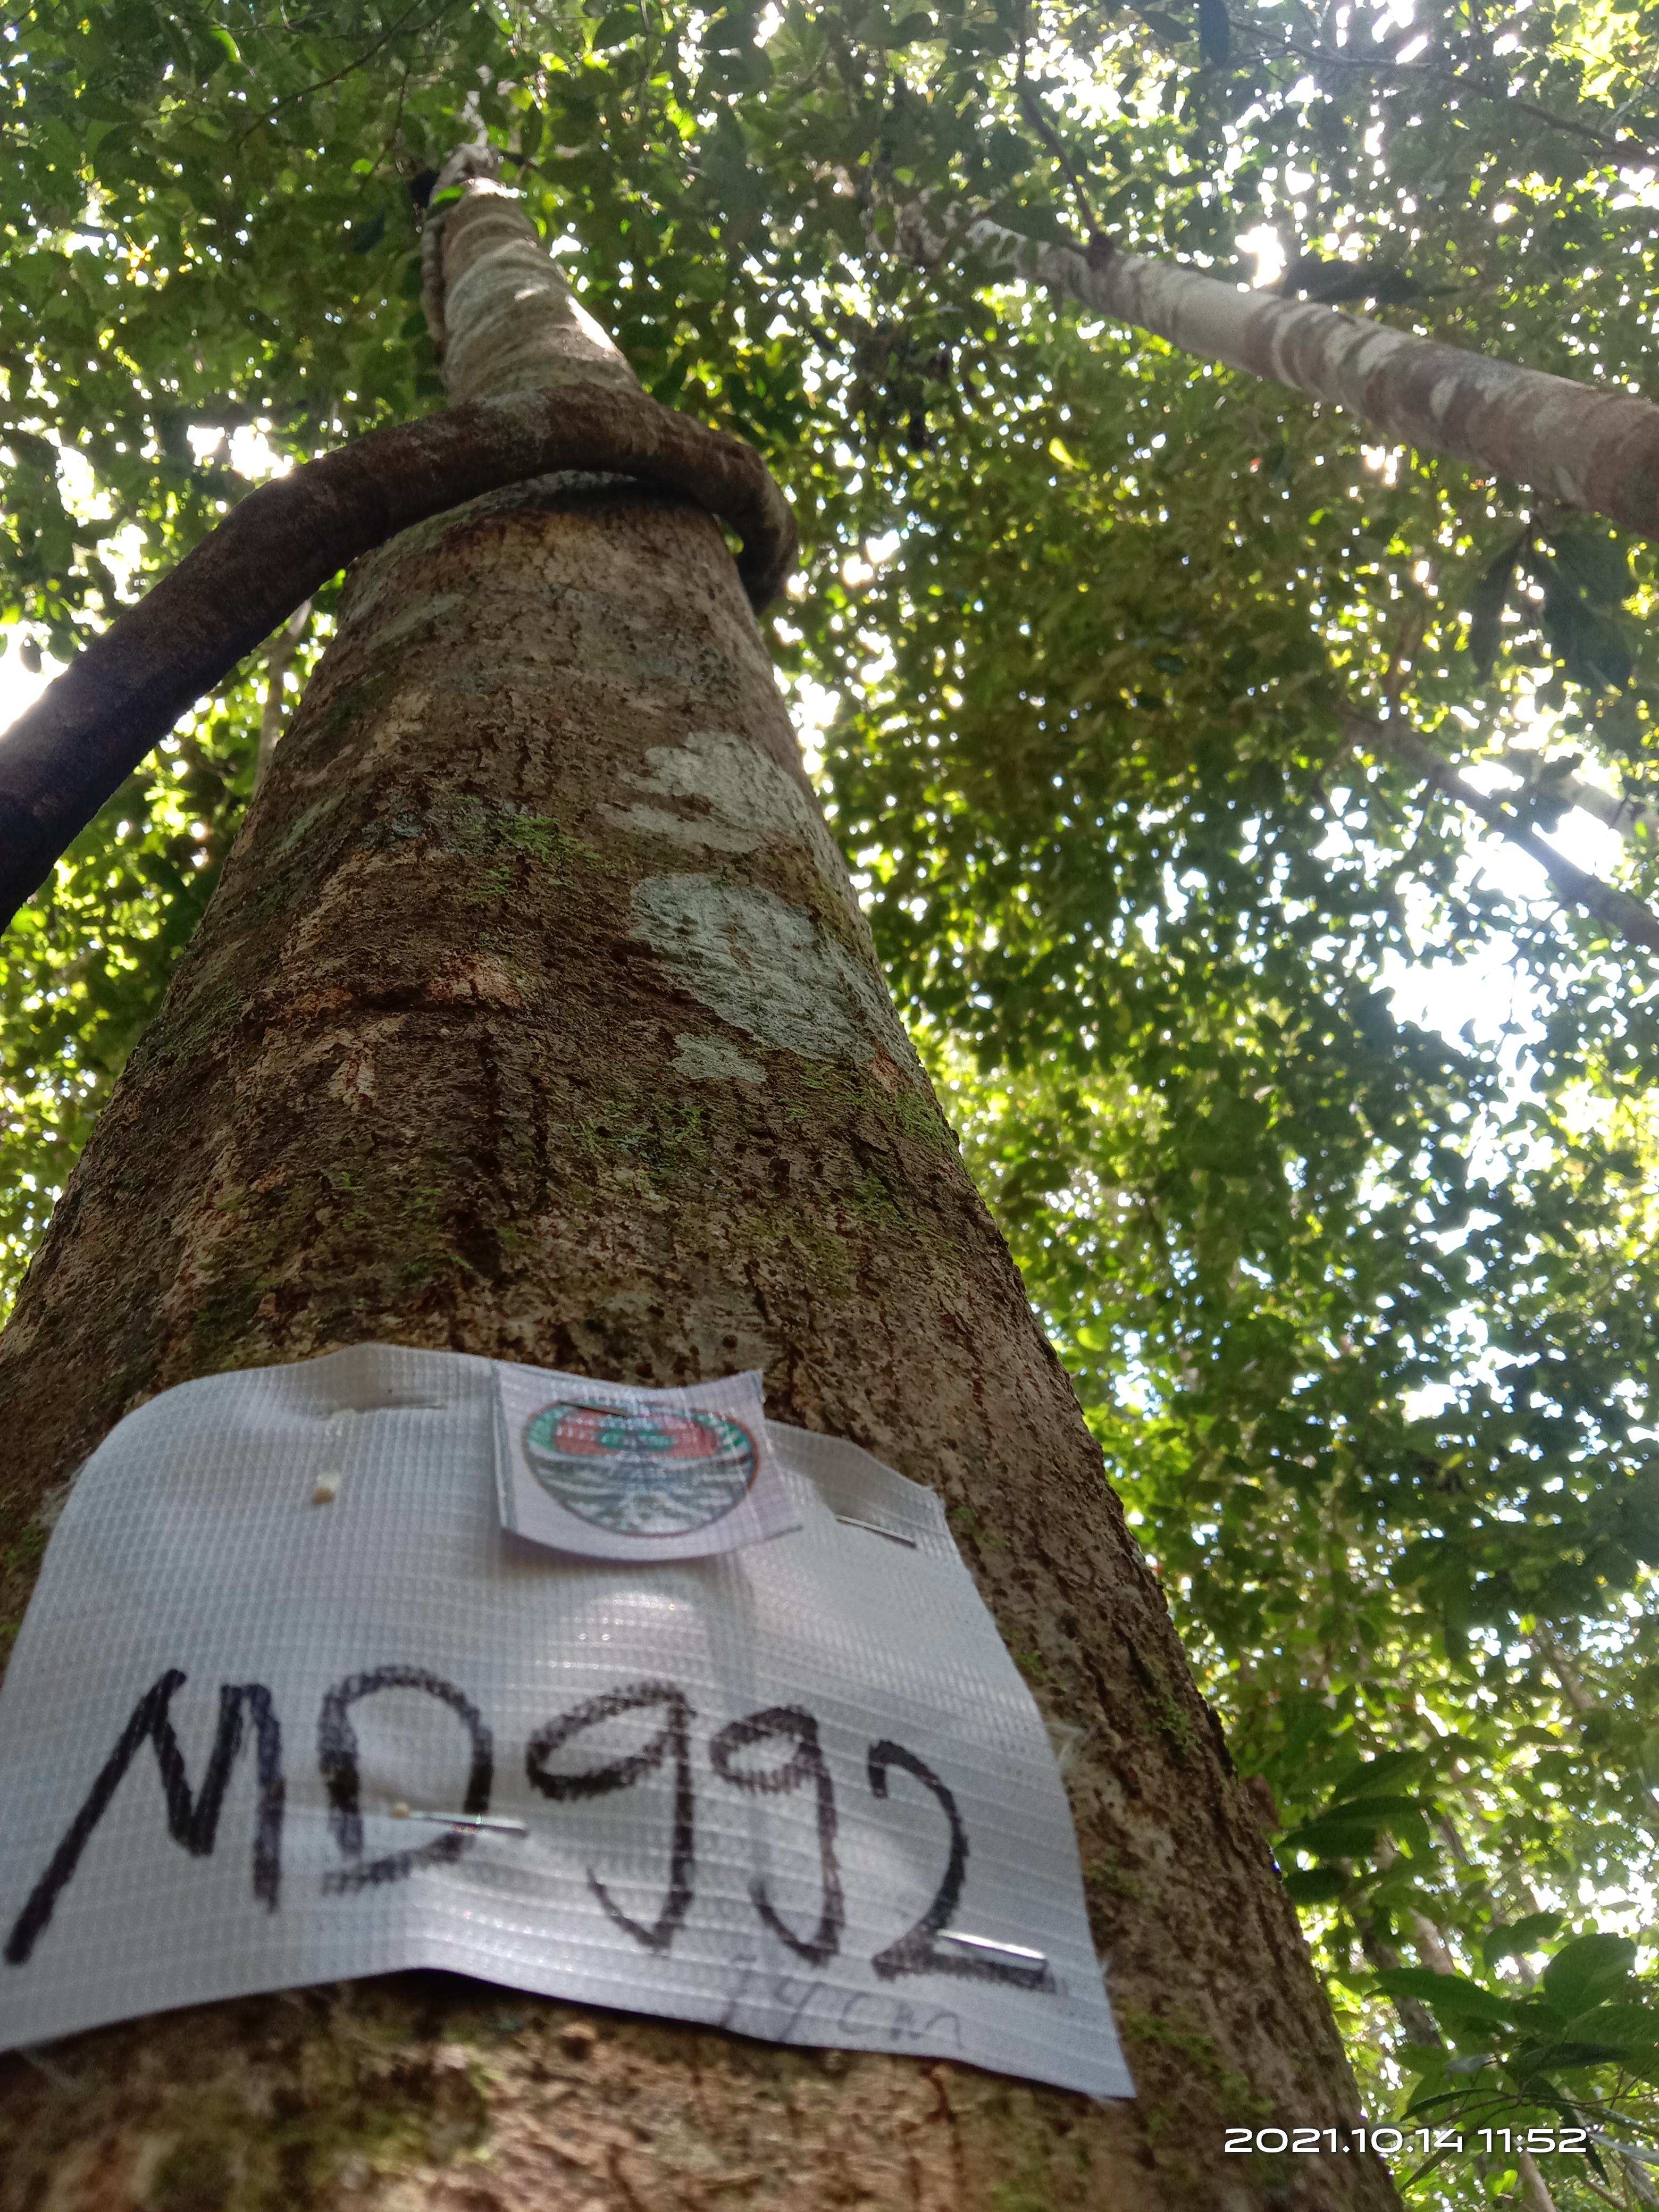 MD992
2021.10.14 11:52